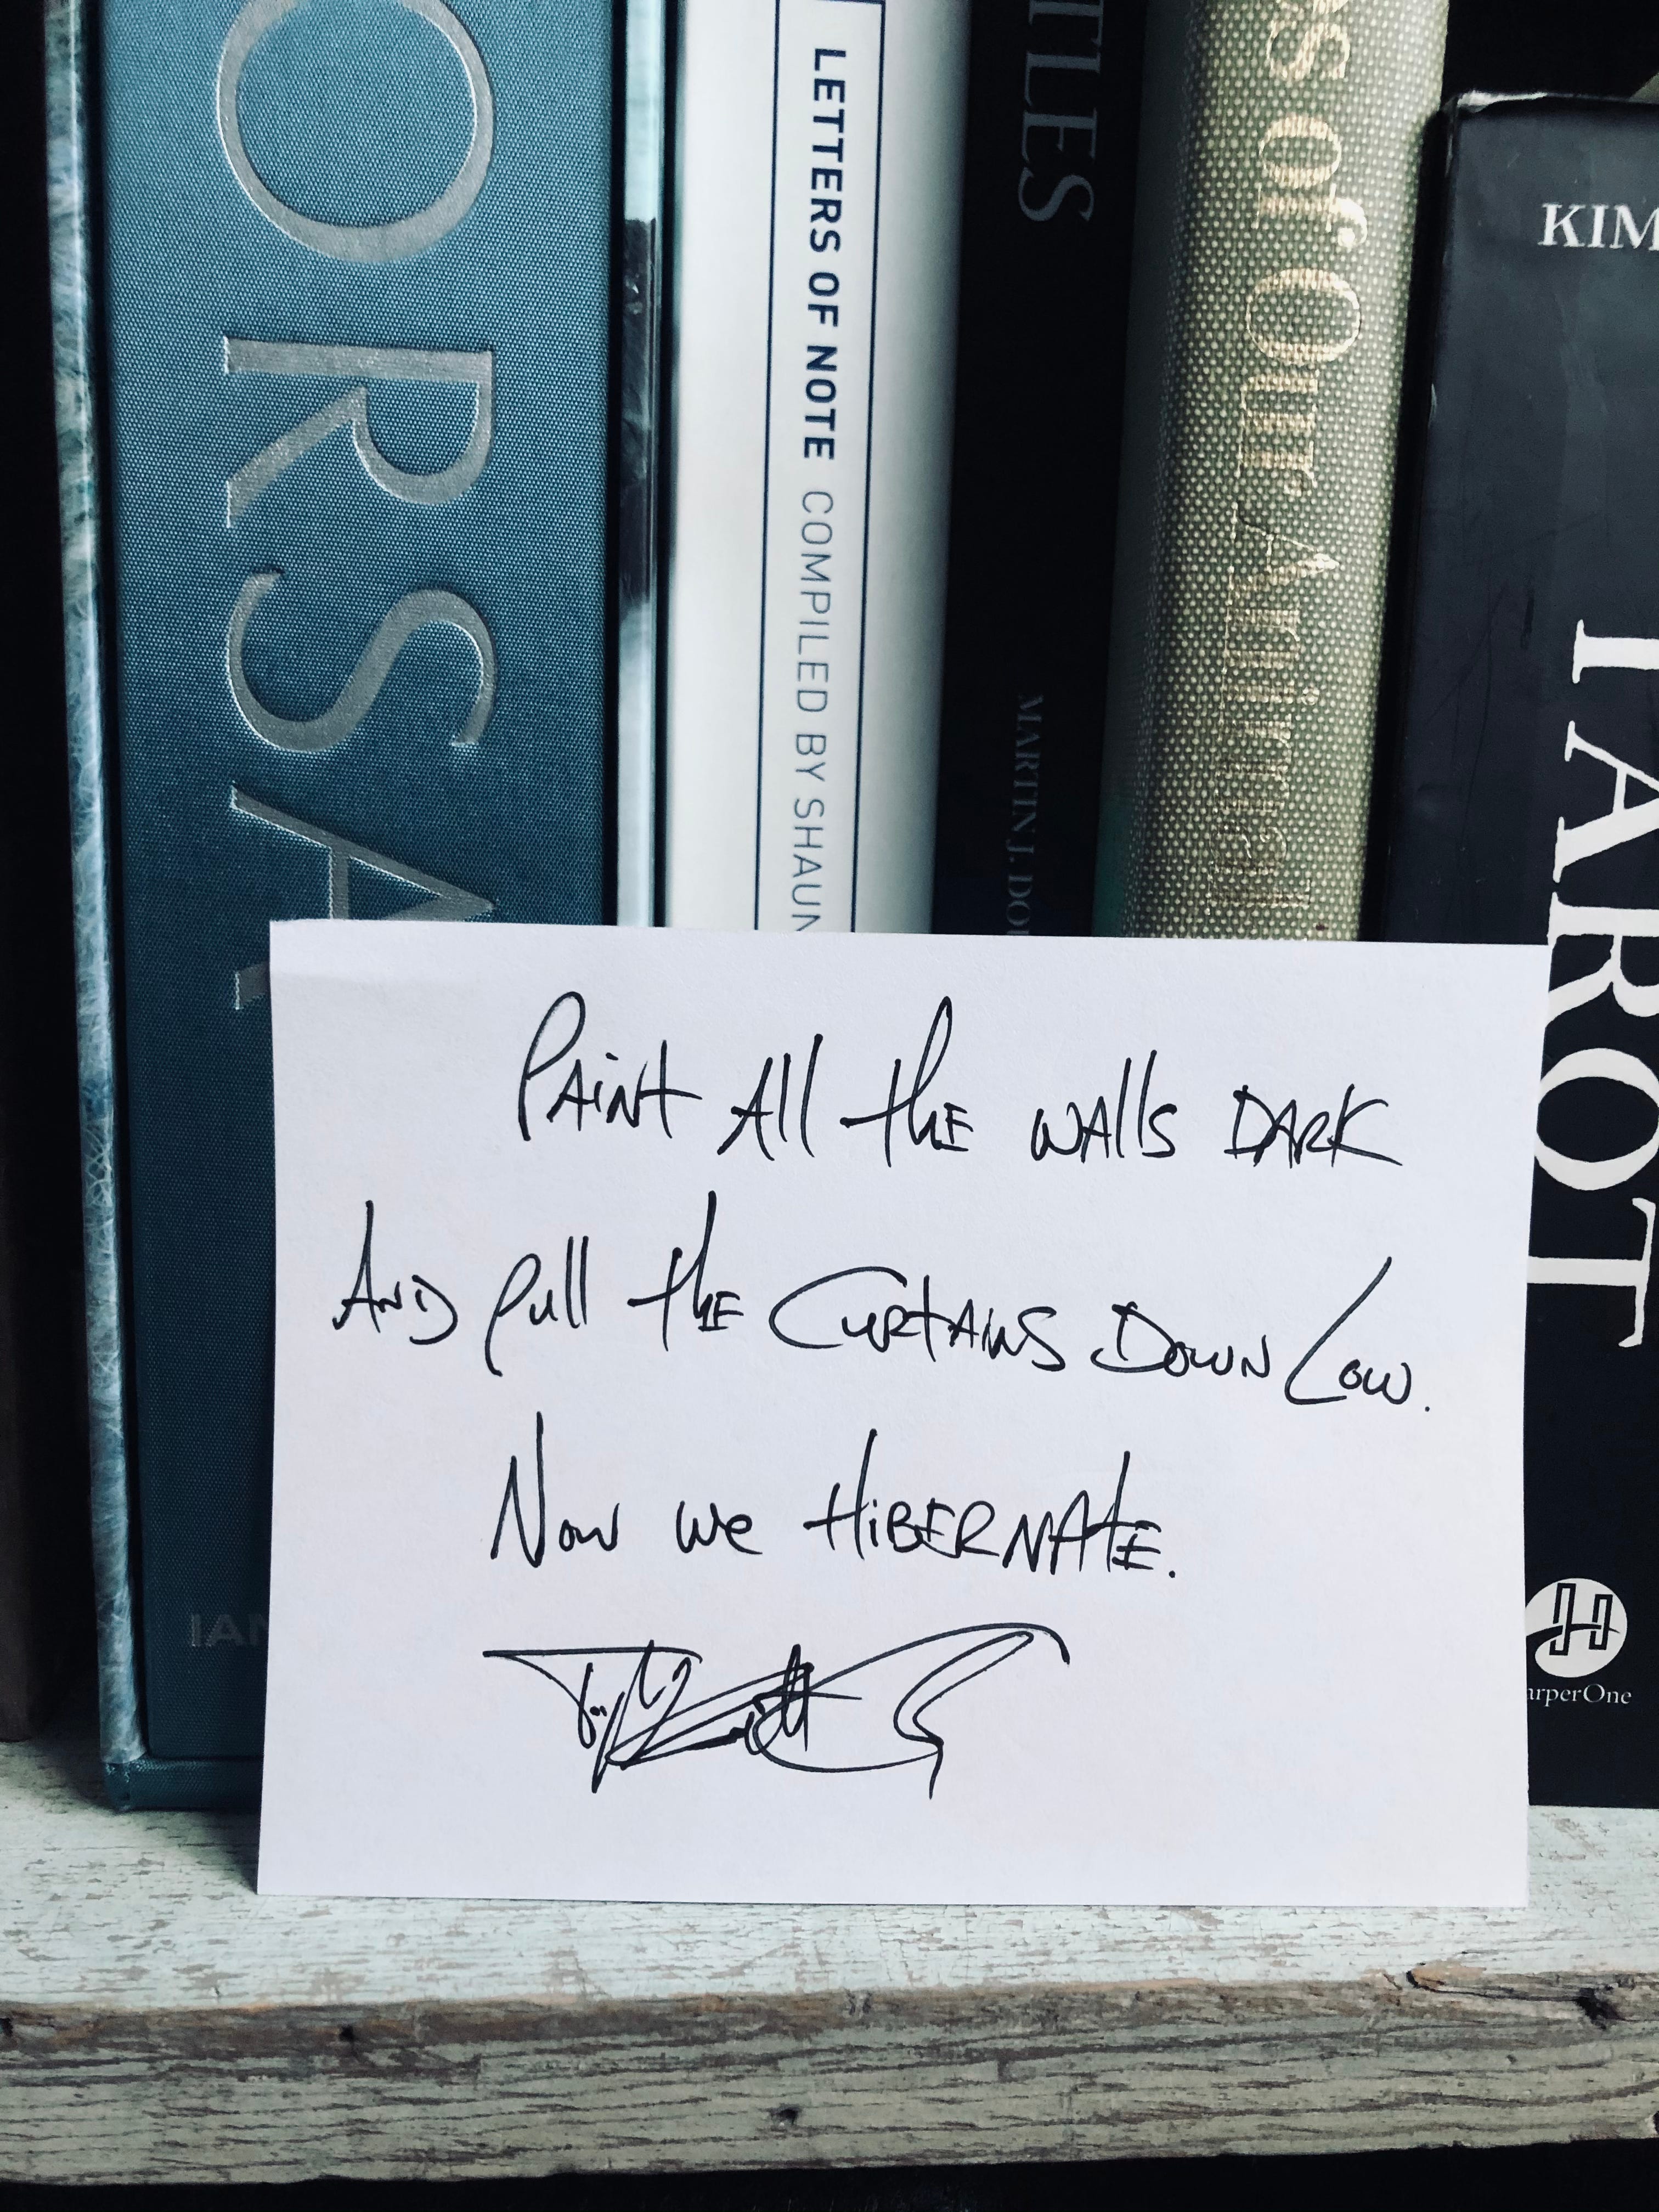 ORSA
IAN
LETTERS OF NOTE COMPILED BY SHAUN
TLES
MARTIN J. DOU
s of Our Animal
KIM
TAROT
H
arperOne
PAiNt All the WAlls DARK
AND pull the CURTAINS DOWN Low.
Now we HiBERNAtE.